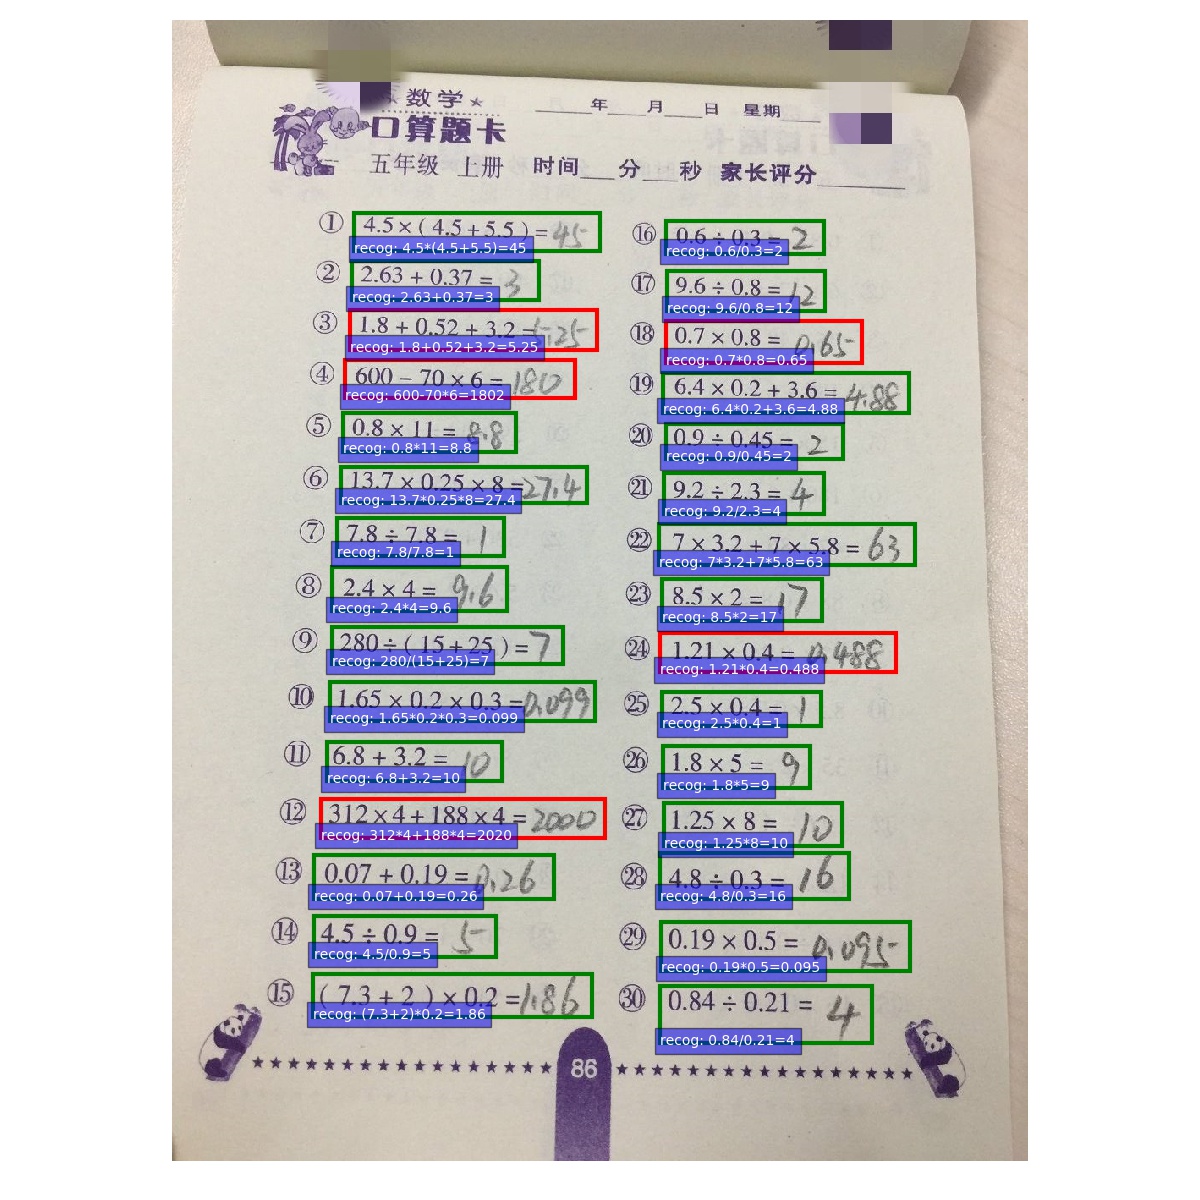 数学
____年____月____日 星期____
口算题卡
五年级 上册 时间___分___秒 家长评分______
① 4.5×(4.5+5.5)=45
recog: 4.5*(4.5+5.5)=45
② 2.63+0.37=3
recog: 2.63+0.37=3
③ 1.8+0.52+3.2=5.25
recog: 1.8+0.52+3.2=5.25
④ 600-70×6=180
recog: 600-70*6=1802
⑤ 0.8×11=8.8
recog: 0.8*11=8.8
⑥ 13.7×0.25×8=27.4
recog: 13.7*0.25*8=27.4
⑦ 7.8÷7.8=1
recog: 7.8/7.8=1
⑧ 2.4×4=9.6
recog: 2.4*4=9.6
⑨ 280÷(15+25)=7
recog: 280/(15+25)=7
⑩ 1.65×0.2×0.3=0.099
recog: 1.65*0.2*0.3=0.099
⑪ 6.8+3.2=10
recog: 6.8+3.2=10
⑫ 312×4+188×4=2000
recog: 312*4+188*4=2020
⑬ 0.07+0.19=0.26
recog: 0.07+0.19=0.26
⑭ 4.5÷0.9=5
recog: 4.5/0.9=5
⑮ (7.3+2)×0.2=1.86
recog: (7.3+2)*0.2=1.86
⑯ 0.6÷0.3=2
recog: 0.6/0.3=2
⑰ 9.6÷0.8=12
recog: 9.6/0.8=12
⑱ 0.7×0.8=0.65
recog: 0.7*0.8=0.65
⑲ 6.4×0.2+3.6=4.88
recog: 6.4*0.2+3.6=4.88
⑳ 0.9÷0.45=2
recog: 0.9/0.45=2
㉑ 9.2÷2.3=4
recog: 9.2/2.3=4
㉒ 7×3.2+7×5.8=63
recog: 7*3.2+7*5.8=63
㉓ 8.5×2=17
recog: 8.5*2=17
㉔ 1.21×0.4=0.488
recog: 1.21*0.4=0.488
㉕ 2.5×0.4=1
recog: 2.5*0.4=1
㉖ 1.8×5=9
recog: 1.8*5=9
㉗ 1.25×8=10
recog: 1.25*8=10
㉘ 4.8÷0.3=16
recog: 4.8/0.3=16
㉙ 0.19×0.5=0.095
recog: 0.19*0.5=0.095
㉚ 0.84÷0.21=4
recog: 0.84/0.21=4
86